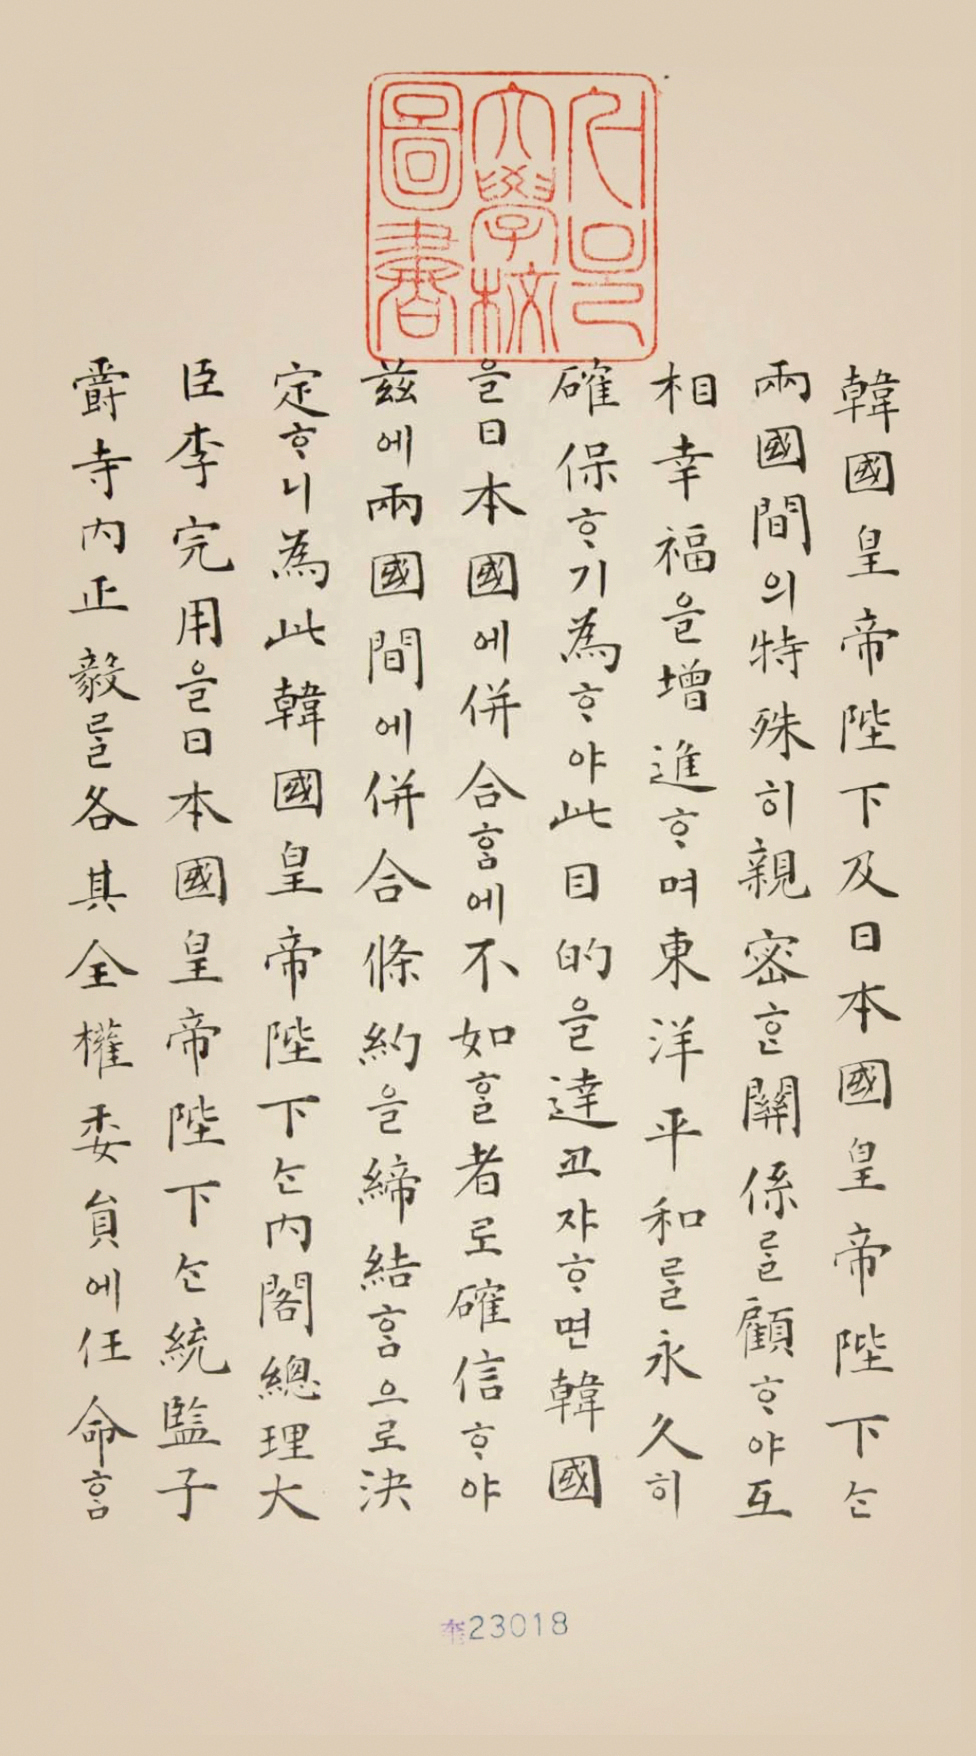 서울
大學校
圖書
韓國皇帝陛下及日本國皇帝陛下는
兩國間의特殊히親密ᄒᆞᆫ關係를顧ᄒᆞ야互
相幸福을增進ᄒᆞ며東洋平和를永久히
確保ᄒᆞ기爲ᄒᆞ야此目的을達코쟈ᄒᆞ면韓國
을日本國에併合ᄒᆞᆷ에不如ᄒᆞᆯ者로確信ᄒᆞ야
玆에兩國間에併合條約을締結ᄒᆞᆷ으로決
定ᄒᆞ니爲此韓國皇帝陛下는內閣總理大
臣李完用을日本國皇帝陛下는統監子
爵寺內正毅를各其全權委員에任命ᄒᆞᆷ
奎23018